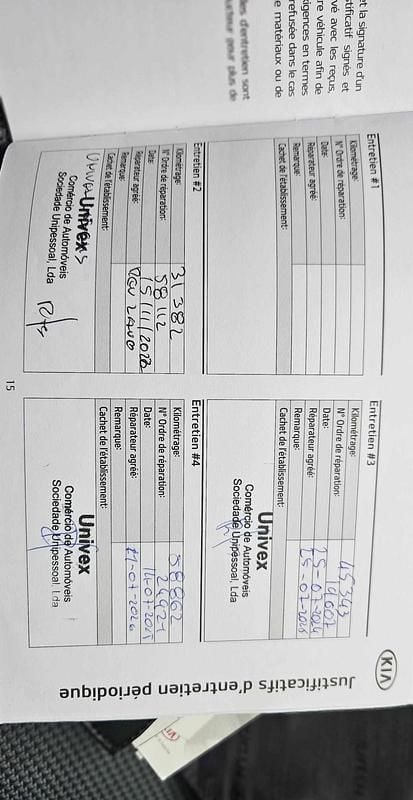 et la signature d'un
tificatif signés et
vé avec les reçus,
re véhicule afin de
igences en termes
refusée dans le cas
e matériaux ou de
les d'entretien sont
plus de
KIA
Justificatifs d'entretien périodique
Entretien #1
Kilométrage:
N° Ordre de réparation:
Date:
Réparateur agréé:
Remarque:
Cachet de l'établissement:
Entretien #2
Kilométrage: 31 382
N° Ordre de réparation: 58112
Date: 15/11/2023
Réparateur agréé:
Remarque:
Cachet de l'établissement:
Univex
Comércio de Automóveis
Sociedade Unipessoal, Lda
Entretien #3
Kilométrage: 45343
N° Ordre de réparation: 19607
Date: 25-07-2024
Réparateur agréé:
Remarque: 25-07-2026
Cachet de l'établissement:
Univex
Comércio de Automóveis
Sociedade Unipessoal, Lda
Entretien #4
Kilométrage: 58862
N° Ordre de réparation: 24921
Date: 14-07-2025
Réparateur agréé:
Remarque:
Cachet de l'établissement:
Univex
Comércio de Automóveis
Sociedade Unipessoal, Lda
15